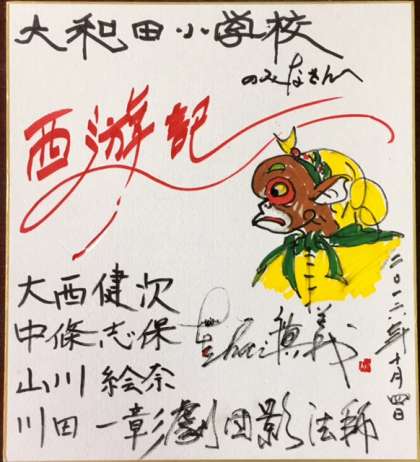 大和田小学校
のみなさんへ
西游記
大西健次
中條志保
山川絵奈
川田一彰
劇団影法師
二〇一六年十月四日